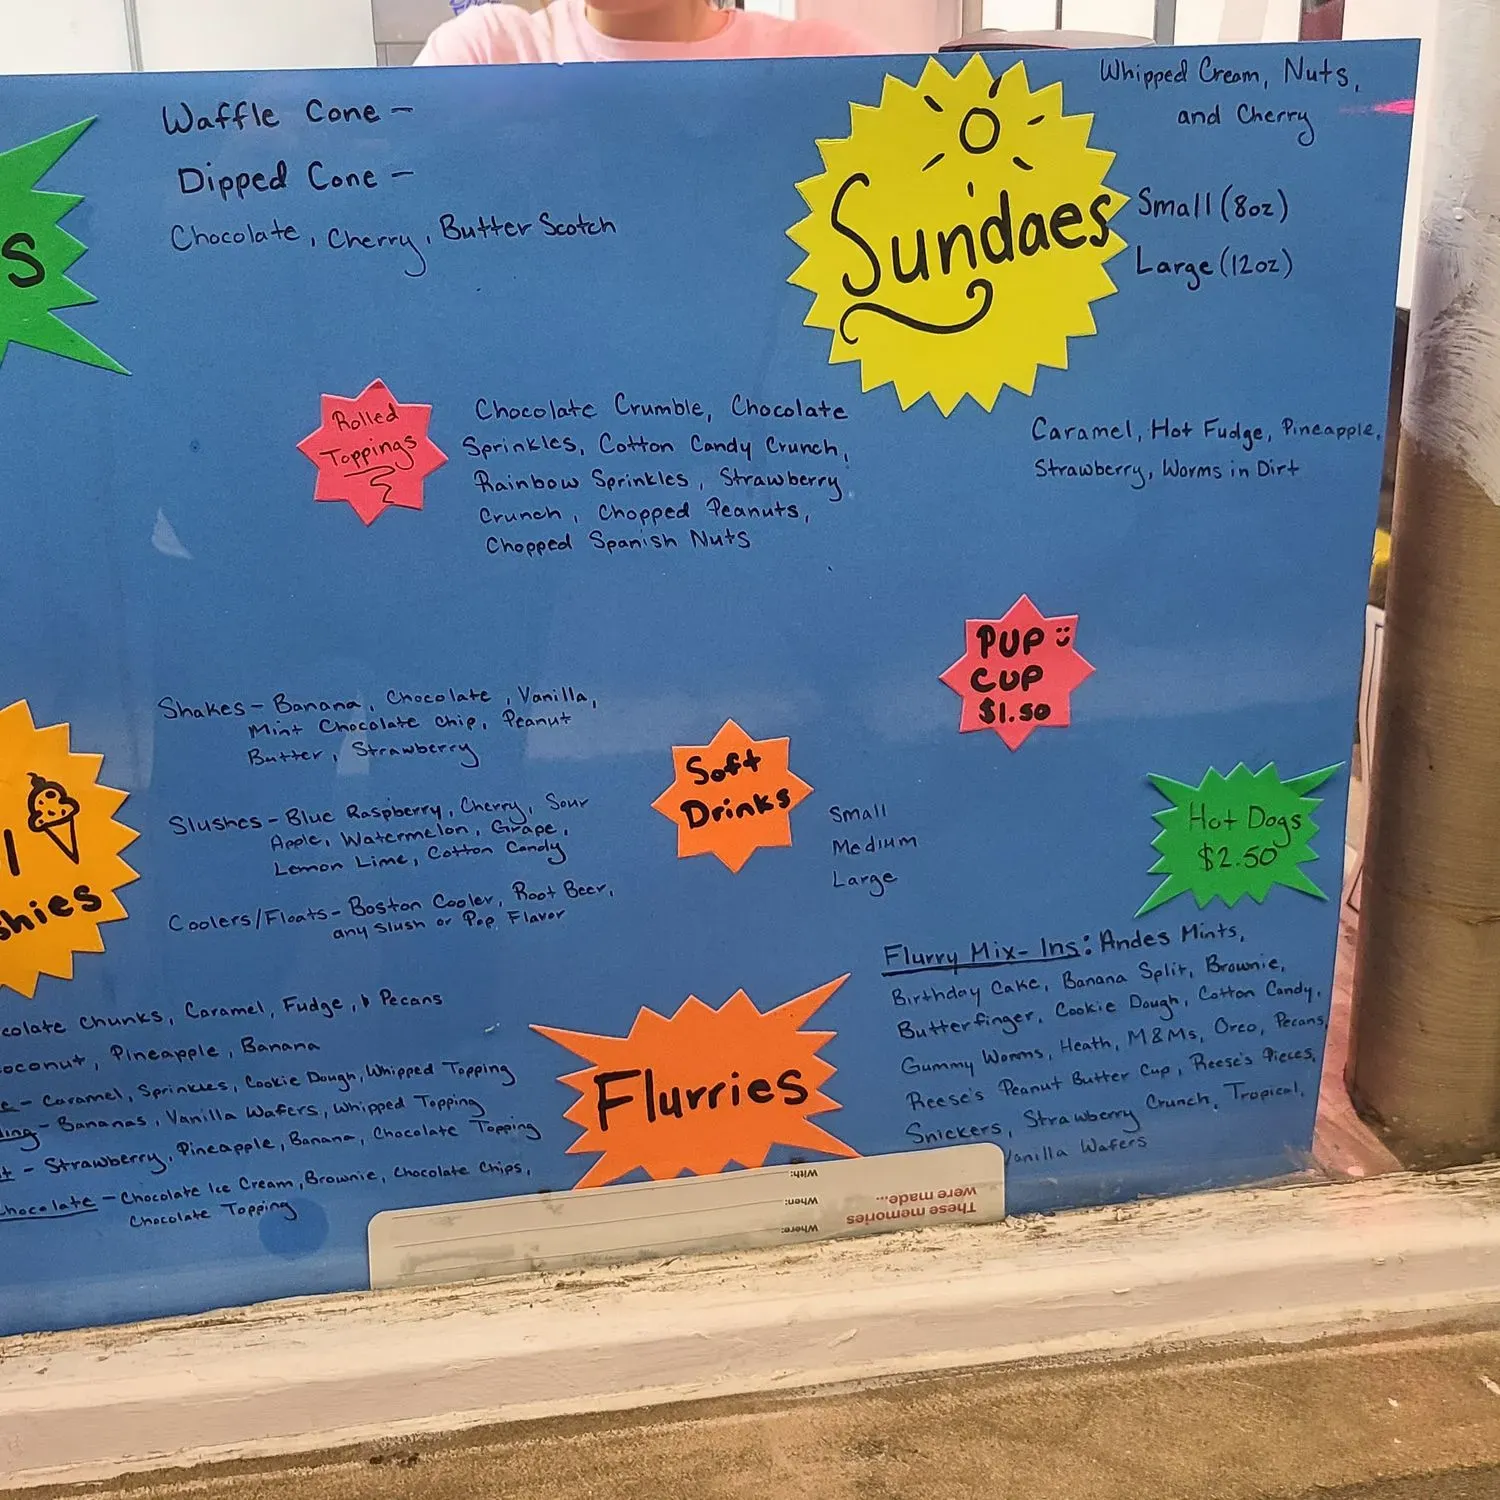 s
Waffle Cone -
Dipped Cone -
Chocolate, Cherry, Butter Scotch
Sundaes
Whipped Cream, Nuts,
and Cherry
Small (8oz)
Large (12oz)
Caramel, Hot Fudge, Pineapple,
Strawberry, Worms in Dirt
Rolled
Toppings
Chocolate Crumble, Chocolate
Sprinkles, Cotton Candy Crunch,
Rainbow Sprinkles, Strawberry
Crunch, Chopped Peanuts,
Chopped Spanish Nuts
PUP
CUP
$1.50
Shakes - Banana, Chocolate, Vanilla,
Mint Chocolate Chip, Peanut
Butter, Strawberry
Slushes - Blue Raspberry, Cherry, Sour
Apple, Watermelon, Grape,
Lemon Lime, Cotton Candy
Coolers/Floats - Boston Cooler, Root Beer,
any slush or Pop Flavor
shies
Soft
Drinks
Small
Medium
Large
Hot Dogs
$2.50
colate Chunks, Caramel, Fudge, & Pecans
oconut, Pineapple, Banana
e - Caramel, Sprinkles, Cookie Dough, Whipped Topping
ding - Bananas, Vanilla Wafers, Whipped Topping
t - Strawberry, Pineapple, Banana, Chocolate Topping
Chocolate - Chocolate Ice Cream, Brownie, Chocolate Chips,
Chocolate Topping
Flurries
Flurry Mix-Ins: Andes Mints,
Birthday Cake, Banana Split, Brownie,
Butterfinger, Cookie Dough, Cotton Candy,
Gummy Worms, Heath, M&Ms, Oreo, Pecans,
Reese's Peanut Butter Cup, Reese's Pieces,
Snickers, Strawberry Crunch, Tropical,
Vanilla Wafers
These memories
were made...
Where:
When:
With: